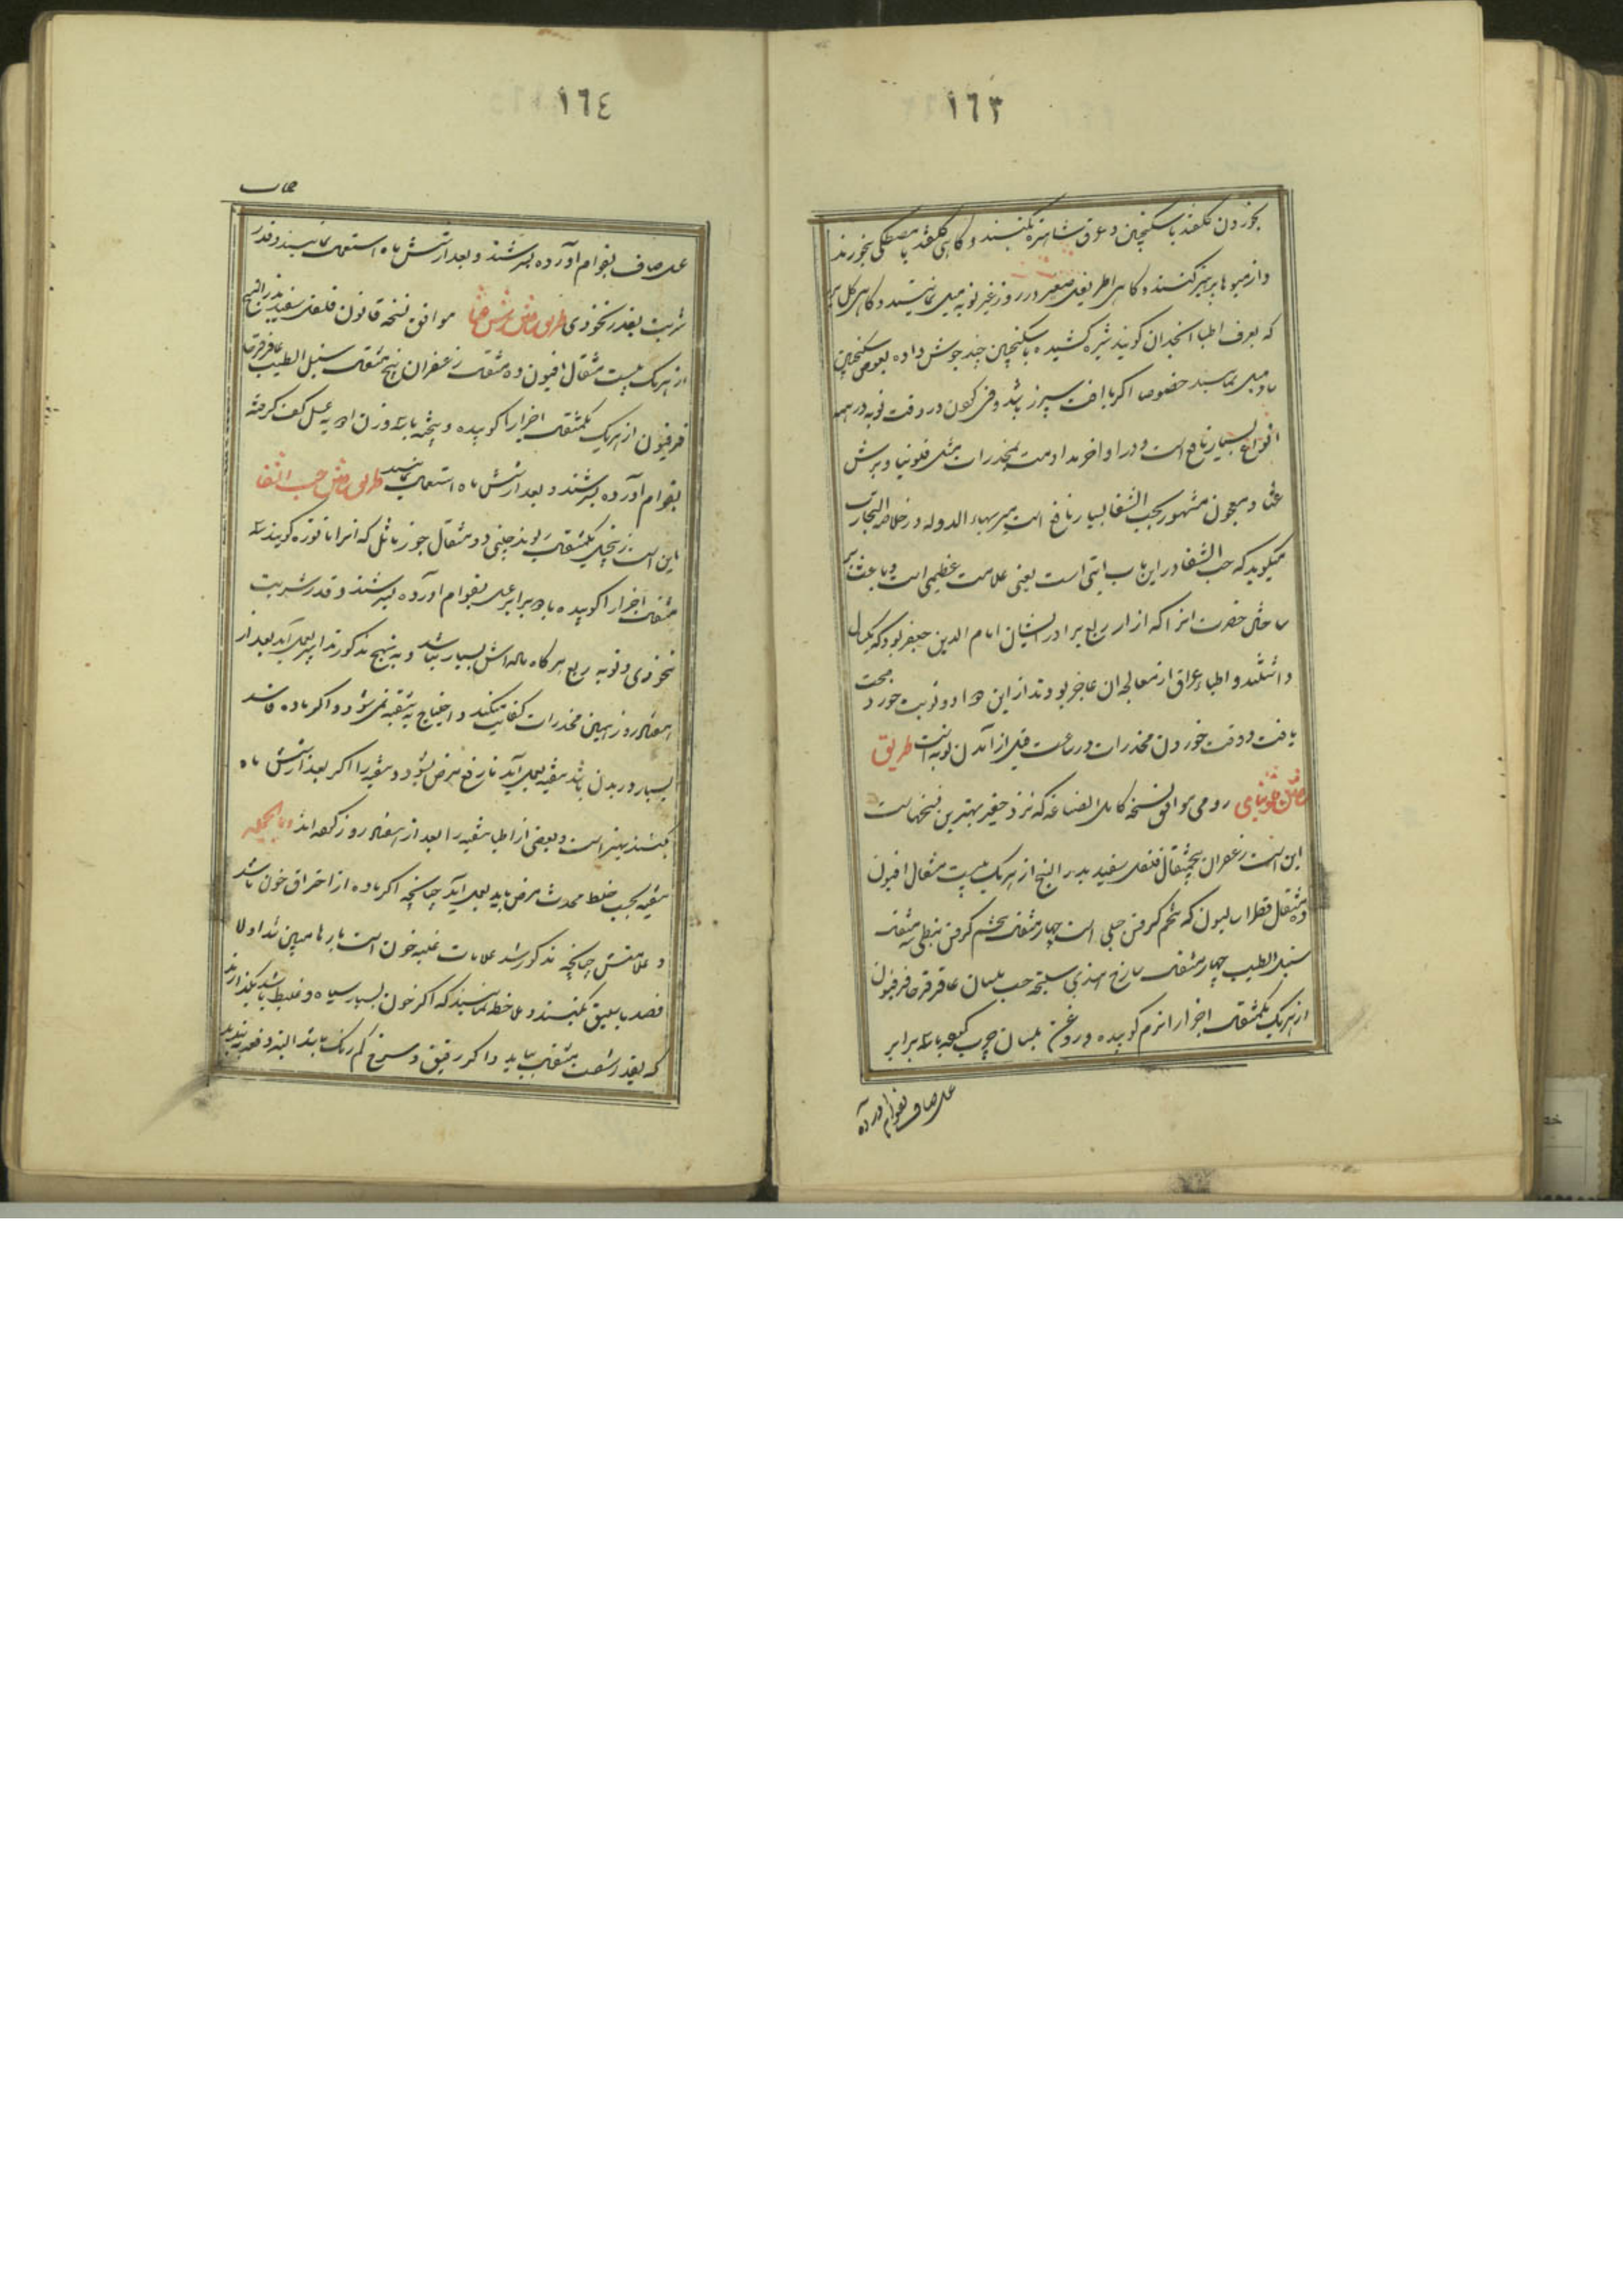 ١٦٣
بخوردن گلقند با سکنجبین و عرق شاهتره بکنند و کاهی گلقند با مصطکی بخورند
و از میوها پرهیز کنند و کاهی اطریفل صغیر در روز غیر نوبه میل نمایند و کاهی کل پر
که بعرف اطبا انجدان کویند شیره کشیده با سکنجبین چند جوش داده بعوض سکنجبین
میل نمایند خصوصا اکر با افت سپرز باشد و قی کردن در وقت نوبه در همه
انواع بسیار نافع است و در اواخر مداومت بمخدرات مثل فلونیا و برش
عشا و معجون مشهور بحب الشفا بسیار نافع است میر بهاء الدوله در خلاصه التجارب
میکوید که حب الشفا در این باب ایتی است یعنی علامت عظیمی است و باعث بر
ساختن حضرت انرا که ازار ربع برادر ایشان امام الدین جعفر بود که یکسال
داشتند و اطباء عراق از معالجه ان عاجز بودند از این دوا دو نوبت خورد صحت
یافت و وقت خوردن مخدرات دو ساعت قبل از آمدن نوبه است طریق
ساختن فلونیای رومی موافق نسخه کامل الصناعه که نزد حقیر بهترین نسخهاست
این است زعفران پنجمثقال فلفل سفید بذر البنج از هریک بیست مثقال افیون
ده مثقال فطراسالیون که تخم کرفس جبلی است چهار مثقال تخم کرفس نبطی سه مثقال
سنبل الطیب چهار مثقال سازج هندی سلیخه حب بلسان عاقرقرحا فرفیون
از هریک یکمثقال اجزا را نرم کوبیده و روغن بلسان چرب کرده با سه برابر
عسل صاف بقوام آورده
١٦٤
عسل صاف بقوام آورده بسرشند و بعد از شش ماه استعمال نمایند و قدر
شربت بقدر نخودی طریق ساختن برش عشا موافق نسخه قانون فلفل سفید بذر البنج
از هریک بیست مثقال افیون ده مثقال زعفران پنج مثقال سنبل الطیب عاقرقرحا
فرفیون از هریک یکمثقال اجزا را کوبیده و بیخته با سه وزن ادویه عسل کف کرفته
بقوام آورده بسرشند و بعد از شش ماه استعمال نمایند طریق ساختن حب الشفا
باین است زنجبیل یکمثقال ریوند چینی دو مثقال جوز ماثل که انرا تاتوره کویند سه
مثقال اجزا را کوبیده با دو برابر عسل بقوام آورده بسرشند و قدر شربت
نخودی و نوبه ربع هر کاه ماده اش بسیار نباشد و به نهج مذکور تدابیر بعمل آید بعد از
هفتاد روز همین مخدرات کفایت میکند و احتیاج به تنقیه نمی شود و اکر ماده فاسد
بسیار در بدن باشد تنقیه بعمل آید تا رفع مرض بشود و تنقیه را اکر بعد از شش ماه
بکنند بهتر است و بعضی از اطبا تنقیه را بعد از هفتاد روز کفته اند و بالجمله
تنقیه بحسب خلط محدث مرض باید بعمل آید چنانچه اکر ماده از احتراق خون باشد
و علامتش چنانچه مذکور شد علامات غلبه خون است بارها مبین شد اولا
فصد باسلیق بکنند و ملاحظه نمایند که اکر خون بسیار سیاه و غلیظ باشد بکذارند
که بقدر شصت مثقال بیاید و اکر رقیق و سرخ کم رنک باشد البته دفعه ببندند